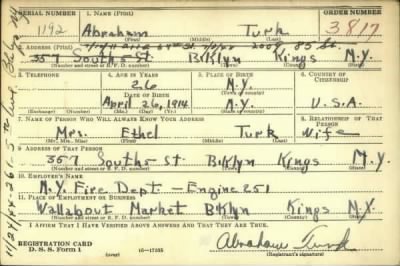 SERIAL NUMBER 1. NAME (Print) ORDER NUMBER
1192 Abraham Turk 3817
(First) (Middle) (Last)
2. ADDRESS (Print)
2009 85 St.
357 South 5 St BKlyn Kings N.Y.
(Number and street or R. F. D. number) (Town) (County) (State)
3. TELEPHONE 4. AGE IN YEARS 5. PLACE OF BIRTH 6. COUNTRY OF CITIZENSHIP
26 N.Y.
(Town or county)
DATE OF BIRTH
April 26, 1914 N.Y. U.S.A.
(Exchange) (Number) (Mo.) (Day) (Yr.) (State or country)
7. NAME OF PERSON WHO WILL ALWAYS KNOW YOUR ADDRESS 8. RELATIONSHIP OF THAT PERSON
Mrs. Ethel Turk Wife
(Mr., Mrs., Miss) (First) (Middle) (Last)
9. ADDRESS OF THAT PERSON
357 South 5 St BKlyn Kings N.Y.
(Number and street or R. F. D. number) (Town) (County) (State)
10. EMPLOYER'S NAME
N.Y. Fire Dept – Engine 251
11. PLACE OF EMPLOYMENT OR BUSINESS
Wallabout Market BKlyn Kings N.Y.
(Number and street or R. F. D. number) (Town) (County) (State)
I AFFIRM THAT I HAVE VERIFIED ABOVE ANSWERS AND THAT THEY ARE TRUE.
REGISTRATION CARD
D. S. S. Form 1 (over) 16—17105 Abraham Turk
(Registrant's signature)